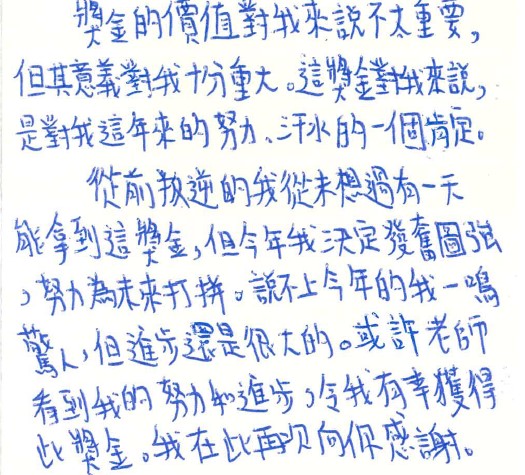 獎金的價值對我來說不太重要,
但其意義對我十分重大。這獎金對我來說,
是對我這年來的努力、汗水的一個肯定。
從前叛逆的我從未想過有一天
能拿到這獎金,但今年我決定發奮圖強
,努力為未來打拼。說不上今年的我一鳴
驚人,但進步還是很大的。或許老師
看到我的努力和進步,令我有幸獲得
此獎金。我在此再次向你感謝。